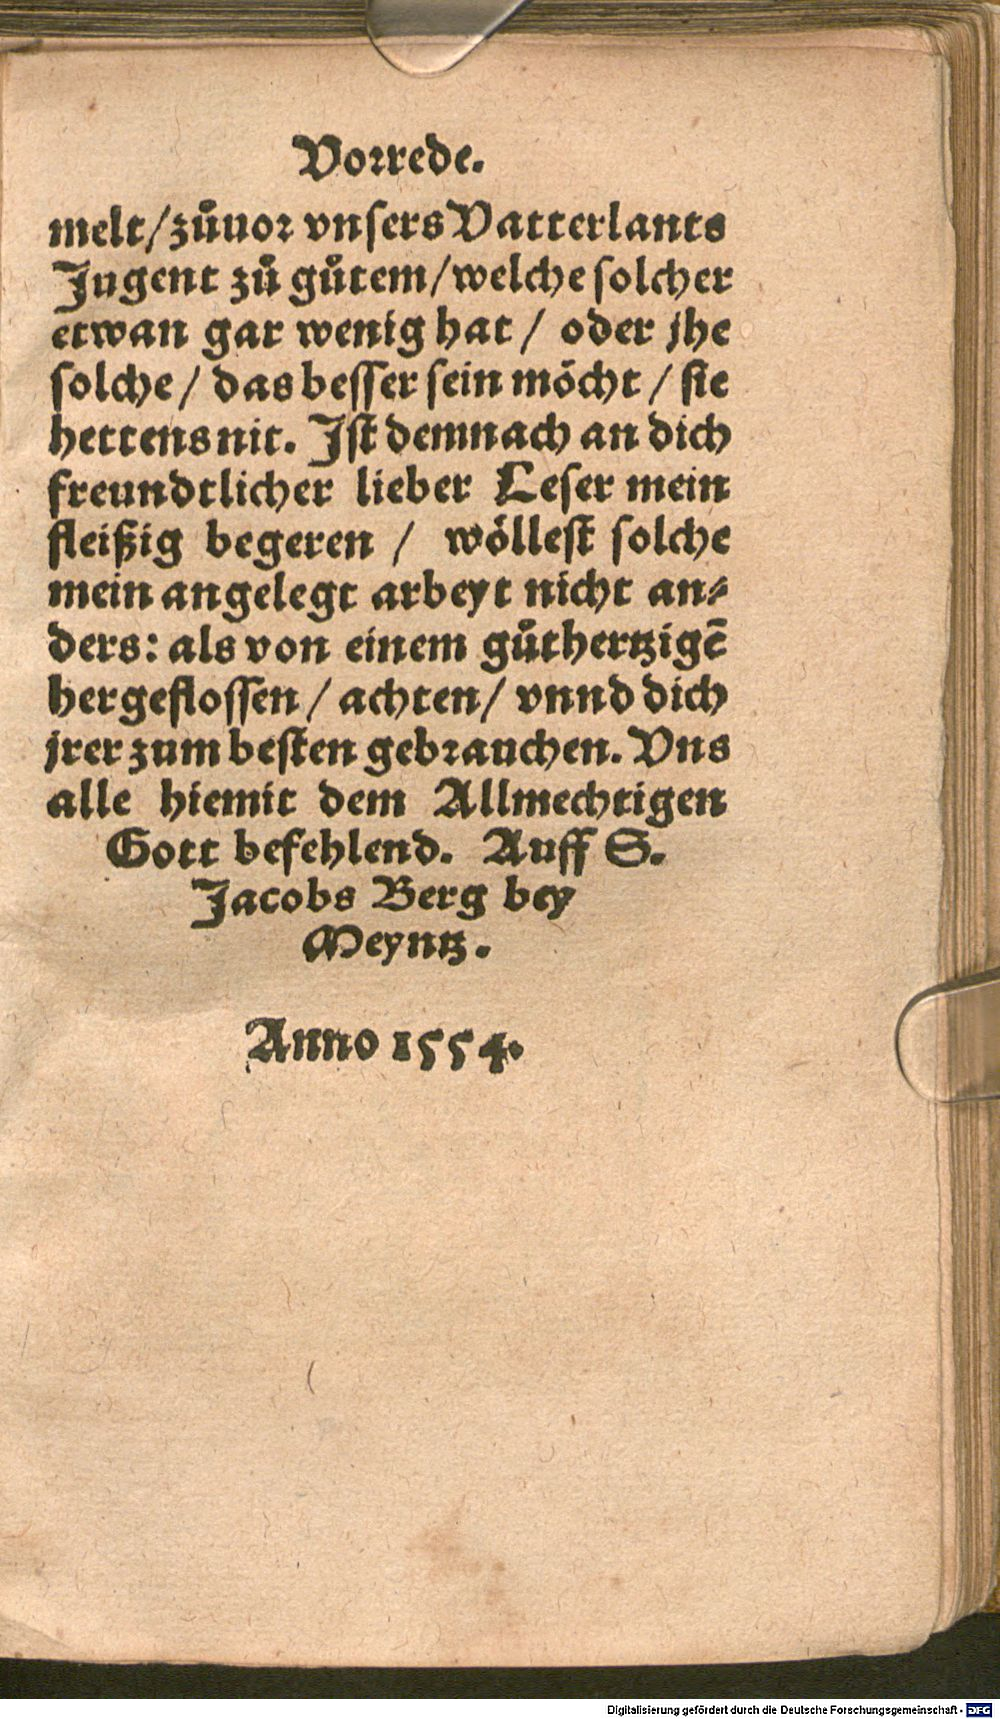 Vorrede.
melt/zůuor vnsers Vatterlants
Jugent zů gůtem/welche solcher
etwan gar wenig hat / oder jhe
solche / das besser sein möcht / sie
hettens nit. Jst demnach an dich
freundtlicher lieber Leser mein
fleißig begeren / wöllest solche
mein angelegt arbeyt nicht an-
ders: als von einem gůthertzigē
hergeflossen / achten/ vnnd dich
jrer zum besten gebrauchen. Vns
alle hiemit dem Allmechtigen
Gott befehlend. Auff S.
Jacobs Berg bey
Meyntz.
Anno 1554.
Digitalisierung gefördert durch die Deutsche Forschungsgemeinschaft - DFG